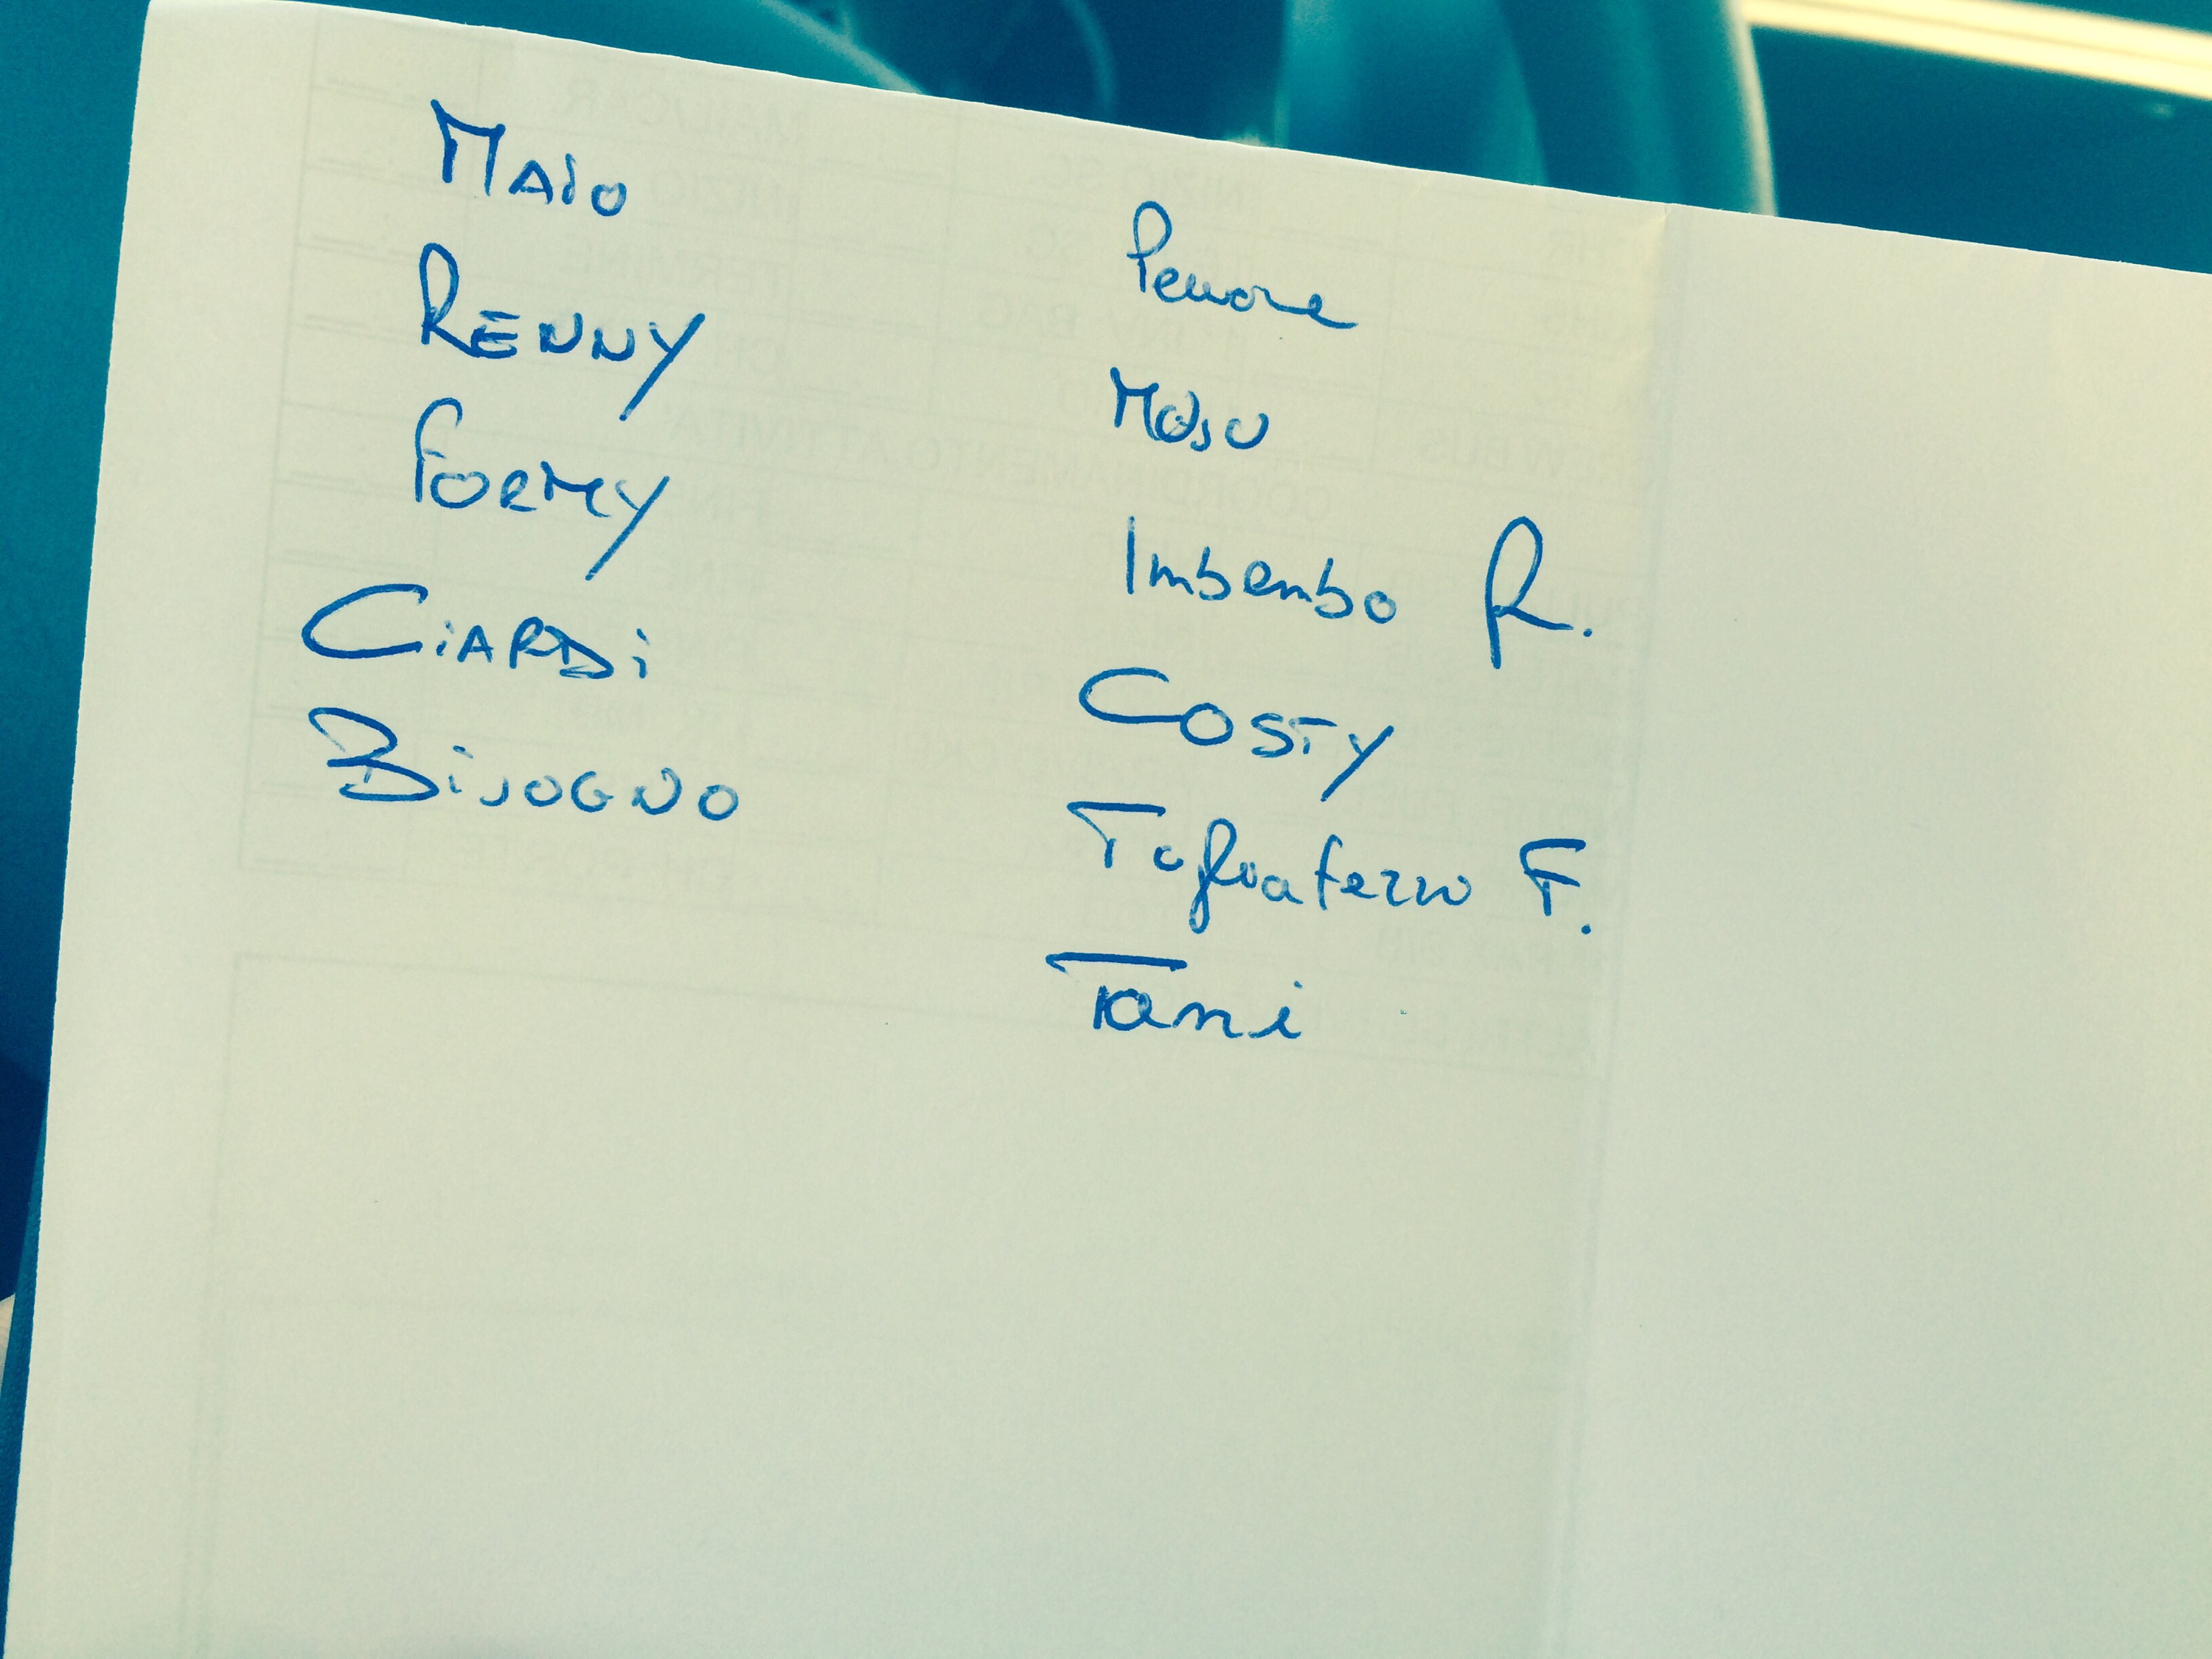 Maio
RENNY
FORMY
CiARDi
BiSOGNO
Perrone
Imbembo R.
COSTY
Tagliaferro F.
Tani